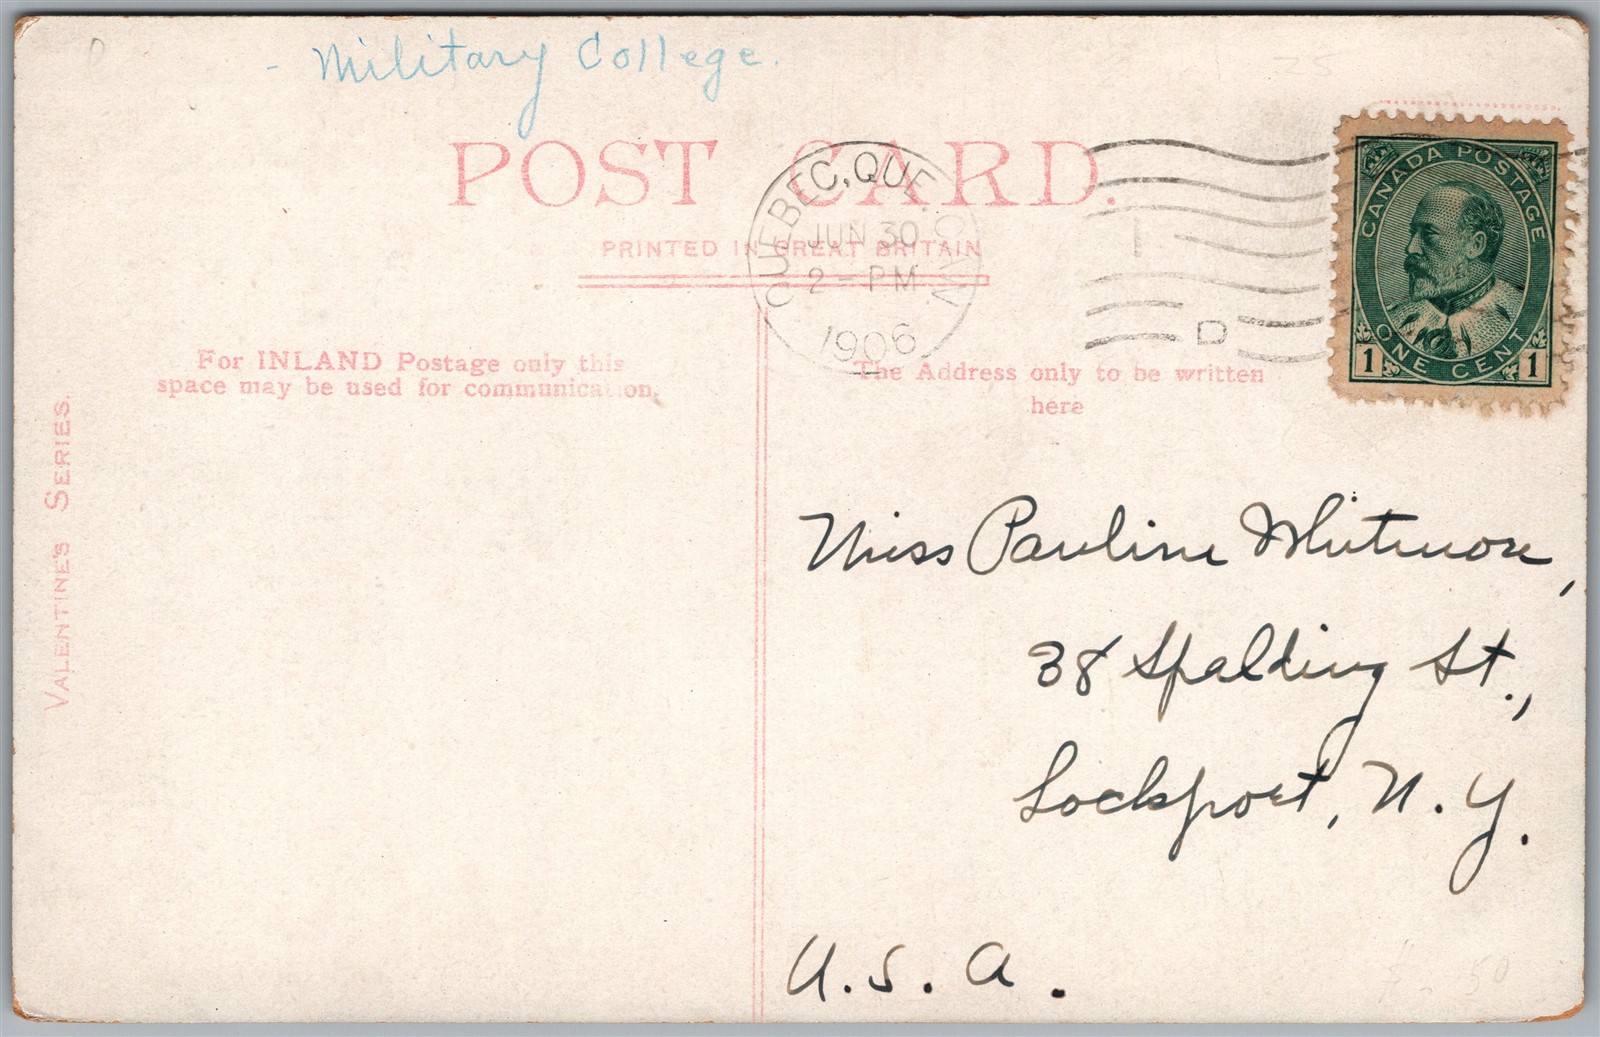 - Military College.
POST CARD.
PRINTED IN GREAT BRITAIN
QUEBEC, QUE. CAN.
JUN 30
2 - PM
1906
D
CANADA POSTAGE
ONE CENT
1 1
For INLAND Postage only this
space may be used for communication.
The Address only to be written
here
VALENTINE'S SERIES.
Miss Pauline Whitmore,
38 Spalding St.,
Lockport, N.Y.
U.S.A.